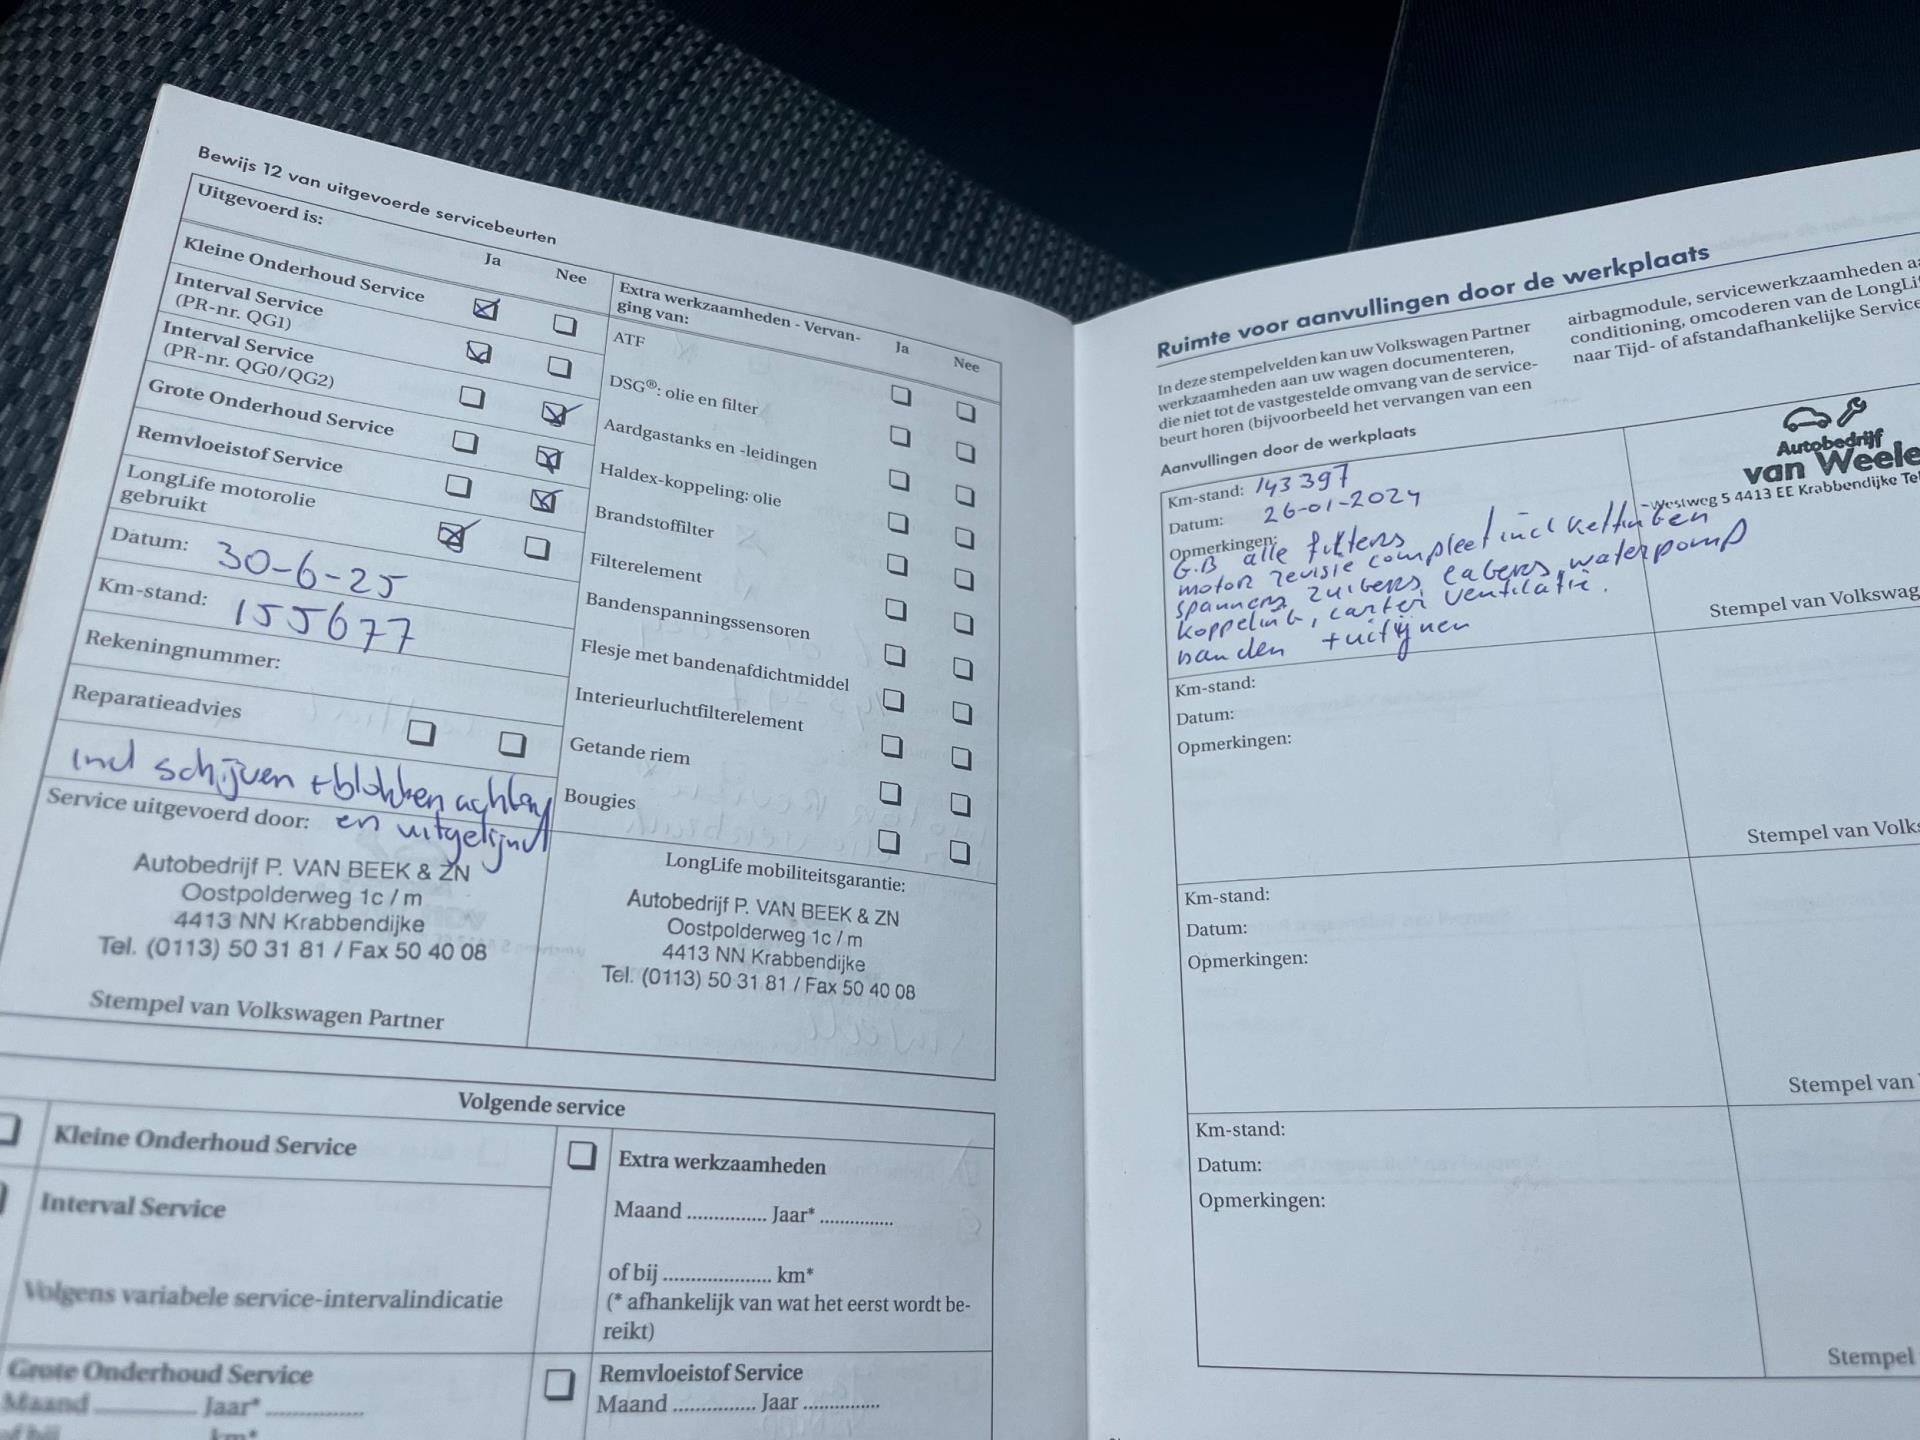 Bewijs 12 van uitgevoerde servicebeurten
Uitgevoerd is:
Ja
Nee
Kleine Onderhoud Service
Interval Service
(PR-nr. QG1)
Interval Service
(PR-nr. QG0/QG2)
Grote Onderhoud Service
Remvloeistof Service
LongLife motorolie
gebruikt
Datum: 30-6-25
Km-stand: 155677
Rekeningnummer:
Reparatieadvies
incl schijven + blokken achter
en uitgelijnd
Service uitgevoerd door:
Autobedrijf P. VAN BEEK & ZN
Oostpolderweg 1c / m
4413 NN Krabbendijke
Tel. (0113) 50 31 81 / Fax 50 40 08
Stempel van Volkswagen Partner
Extra werkzaamheden - Vervan-
ging van:
Ja
Nee
ATF
DSG®: olie en filter
Aardgastanks en -leidingen
Haldex-koppeling: olie
Brandstoffilter
Filterelement
Bandenspanningssensoren
Flesje met bandenafdichtmiddel
Interieurluchtfilterelement
Getande riem
Bougies
LongLife mobiliteitsgarantie:
Autobedrijf P. VAN BEEK & ZN
Oostpolderweg 1c / m
4413 NN Krabbendijke
Tel. (0113) 50 31 81 / Fax 50 40 08
Volgende service
Kleine Onderhoud Service
Interval Service
Volgens variabele service-intervalindicatie
Grote Onderhoud Service
Maand ............ Jaar* ...............
of bij
km*
Extra werkzaamheden
Maand ............... Jaar* ..............
of bij ..................... km*
(* afhankelijk van wat het eerst wordt be-
reikt)
Remvloeistof Service
Maand ............... Jaar ..............
Ruimte voor aanvullingen door de werkplaats
In deze stempelvelden kan uw Volkswagen Partner
werkzaamheden aan uw wagen documenteren,
die niet tot de vastgestelde omvang van de service-
beurt horen (bijvoorbeeld het vervangen van een
airbagmodule, servicewerkzaamheden
conditioning, omcoderen van de
naar Tijd- of afstandafhankelijke
Aanvullingen door de werkplaats
Km-stand: 143397
Datum: 26-01-2024
Opmerkingen:
G.B alle filters
motor revisie compleet incl kettingen
spanners, zuigers, lagers, waterpomp
koppeling, carter ventilatie.
banden + uitlijnen
Autobedrijf
van Weele
Westweg 5 4413 EE Krabbendijke
Stempel van
Km-stand:
Datum:
Opmerkingen:
Stempel van
Km-stand:
Datum:
Opmerkingen:
Stempel van
Km-stand:
Datum:
Opmerkingen:
Stempel